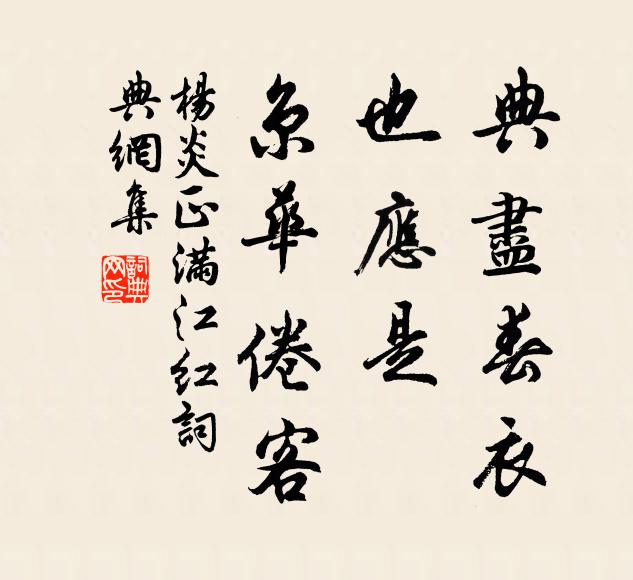 典盡春衣
也應是
京華倦客
楊炎正滿江红詞
典網集
詞典网印